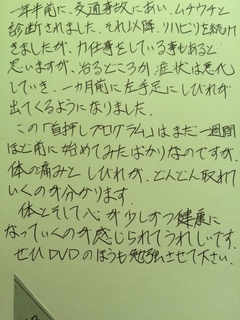 一年半前に、交通事故にあい、ムチウチと
診断されました。それ以降、リハビリを続けて
きましたが、力仕事をしている事もあると
思いますが、治るどころか症状は悪化
していき、一カ月前に左手足にしびれが
出てくるようになりました。
この「首押しプログラム」はまだ一週間
ほど前に始めてみたばかりなのですが、
体の痛みとしびれが、どんどん取れて
いくのが分かります。
体とそして心が少しずつ健康に
なっていくのが感じられてうれしいです。
ぜひDVDのほうも勉強させて下さい。